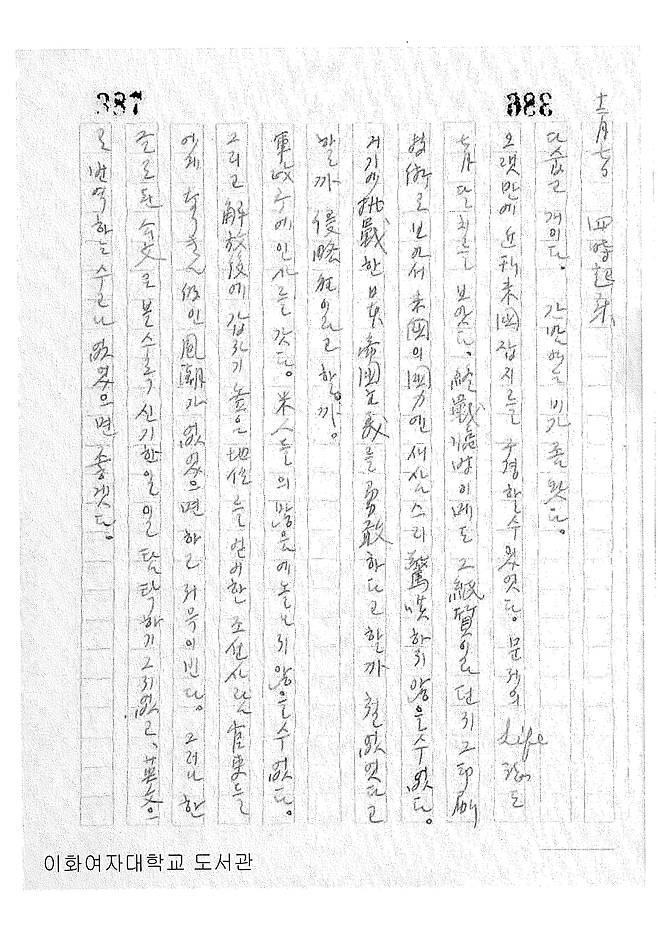 387
386
十二月七日 四時起床
다습고 개이다. 간밤에는 비가 좀 왓다.
오랫만에 近刊 米國잡지를 구경할수있엇다. 문제의 Life 誌도
七月달치를 보앗다. 終戰 이레도 그紙質이라던지 그印刷
技術로 보아서 米國의 國力엔 새삼스리 驚嘆하지 않을수 없다.
거기에 挑戰한 日本帝國主義를 勇敢하다고 할까 철없엇다고
할까 侵略狂이라고 할까.
軍政 에 인사를 갓다. 米人들의 많음에 놀나지 않을수 없다.
그리고 解放後에 갑작기 높은 地位를 얻어한 조선사람 官吏들
에게 인 風潮가 없었으면 하고 저윽이 빈다. 그러나 한
글로된 公文으로 볼스록 신기한일이 탐탁하기 그지없고, 英文으
로 번역하는 수고나 없었으면 좋겟다.
이화여자대학교 도서관